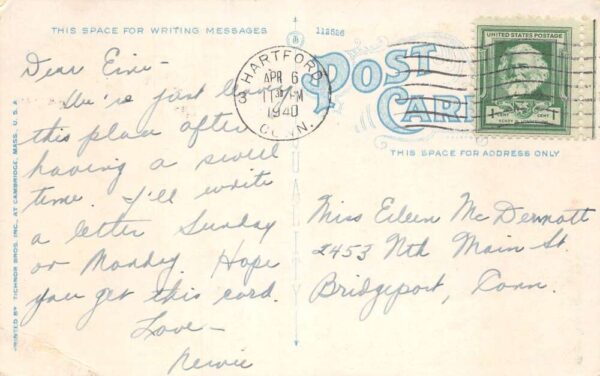 THIS SPACE FOR WRITING MESSAGES
112526
Dear
We're just leaving
this place after
having a swell
time. I'll write
a letter Sunday
or Monday. Hope
you get this card.
Love—
HARTFORD
3
APR 6
1940
CONN.
POST
CARD
UNITED STATES POSTAGE
1 CENT CENT
THIS SPACE FOR ADDRESS ONLY
QUALITY
Miss Eileen McDermott
2453 Nth Main St.
Bridgeport, Conn.
PRINTED BY TICHNOR BROS. INC., AT CAMBRIDGE, MASS., U.S.A.